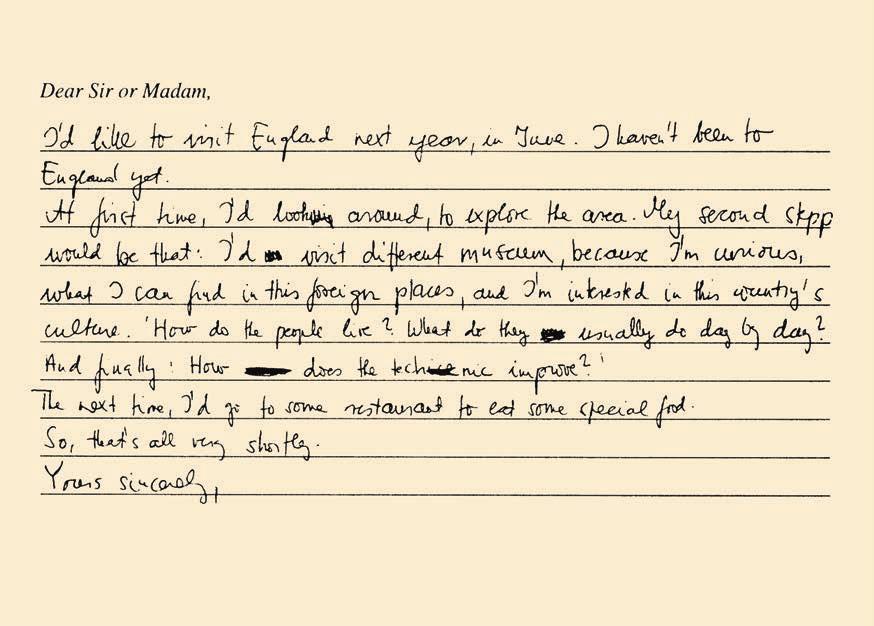 Dear Sir or Madam,
I'd like to visit England next year, in June. I haven't been to
England yet.
At first time, I'd look around, to explore the area. My second stepp
would be that: I'd visit different museum, because I'm curious,
what I can find in this foreign places, and I'm interested in this country's
culture. 'How do the people live? What do they usually do day by day?
And finally: How does the technic improve?'
The next time, I'd go to some restaurant to eat some special food.
So, that's all very shortly.
Yours sincerely,